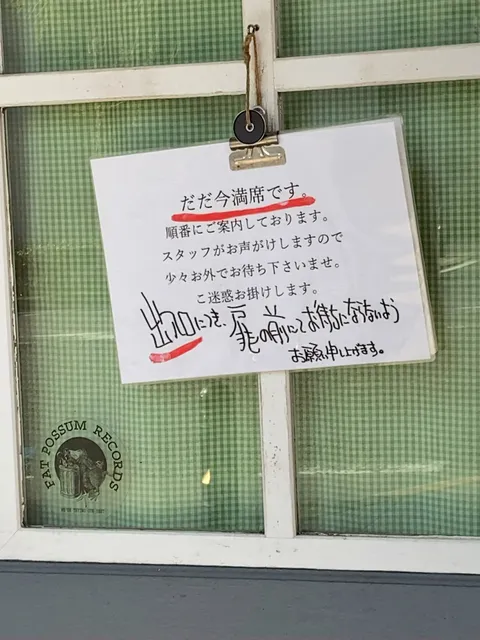 だだ今満席です。
順番にご案内しております。
スタッフがお声がけしますので
少々お外でお待ち下さいませ。
ご迷惑お掛けします。
出口につき、扉の前にてお待ちにならないよう
お願い申し上げます。
FAT POSSUM RECORDS
WE'RE TRYING OUR BEST